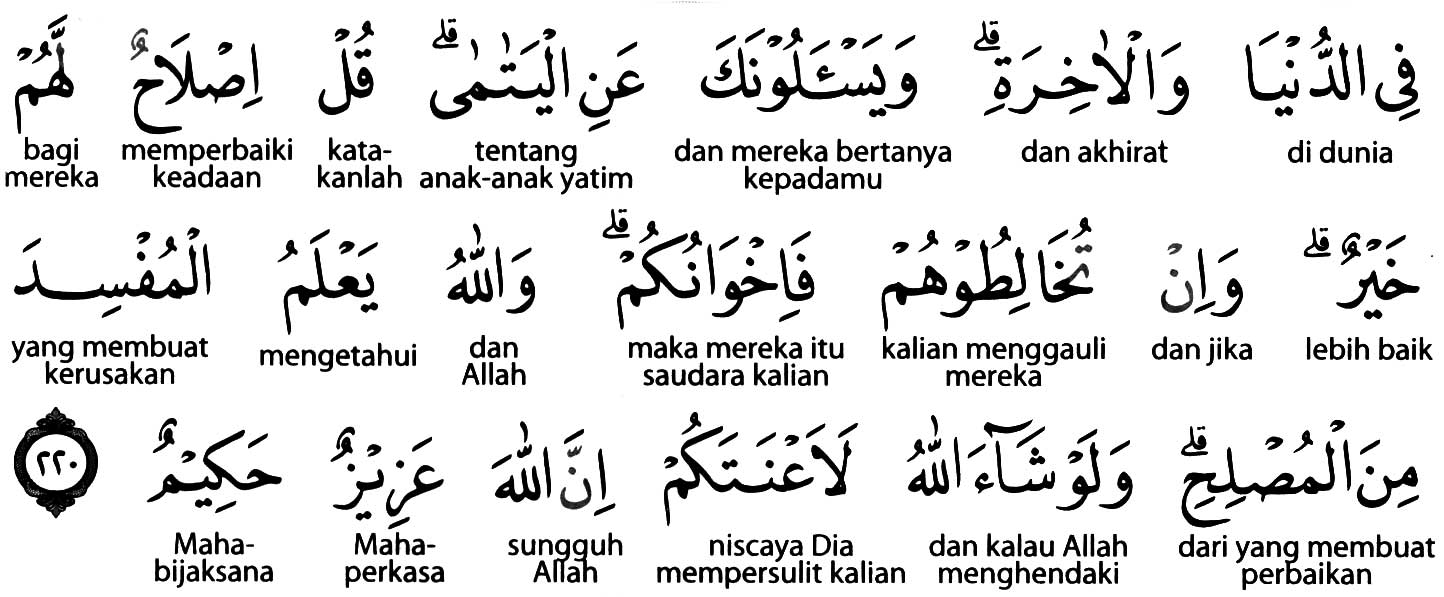 فِى الدُّنْيَا وَالْاٰخِرَةِ ۗ وَيَسْـَٔلُوْنَكَ عَنِ الْيَتٰمٰىۗ قُلْ اِصْلَاحٌ لَّهُمْ
di dunia dan akhirat dan mereka bertanya kepadamu tentang anak-anak yatim kata-kanlah memperbaiki keadaan bagi mereka
خَيْرٌ ۗ وَاِنْ تُخَالِطُوْهُمْ فَاِخْوَانُكُمْ ۗ وَاللّٰهُ يَعْلَمُ الْمُفْسِدَ
lebih baik dan jika kalian menggauli mereka maka mereka itu saudara kalian dan Allah mengetahui yang membuat kerusakan
مِنَ الْمُصْلِحِ ۗ وَلَوْ شَاۤءَ اللّٰهُ لَاَعْنَتَكُمْ اِنَّ اللّٰهَ عَزِيْزٌ حَكِيْمٌ ٢٢٠
dari yang membuat perbaikan dan kalau Allah menghendaki niscaya Dia mempersulit kalian sungguh Allah Maha-perkasa Maha-bijaksana